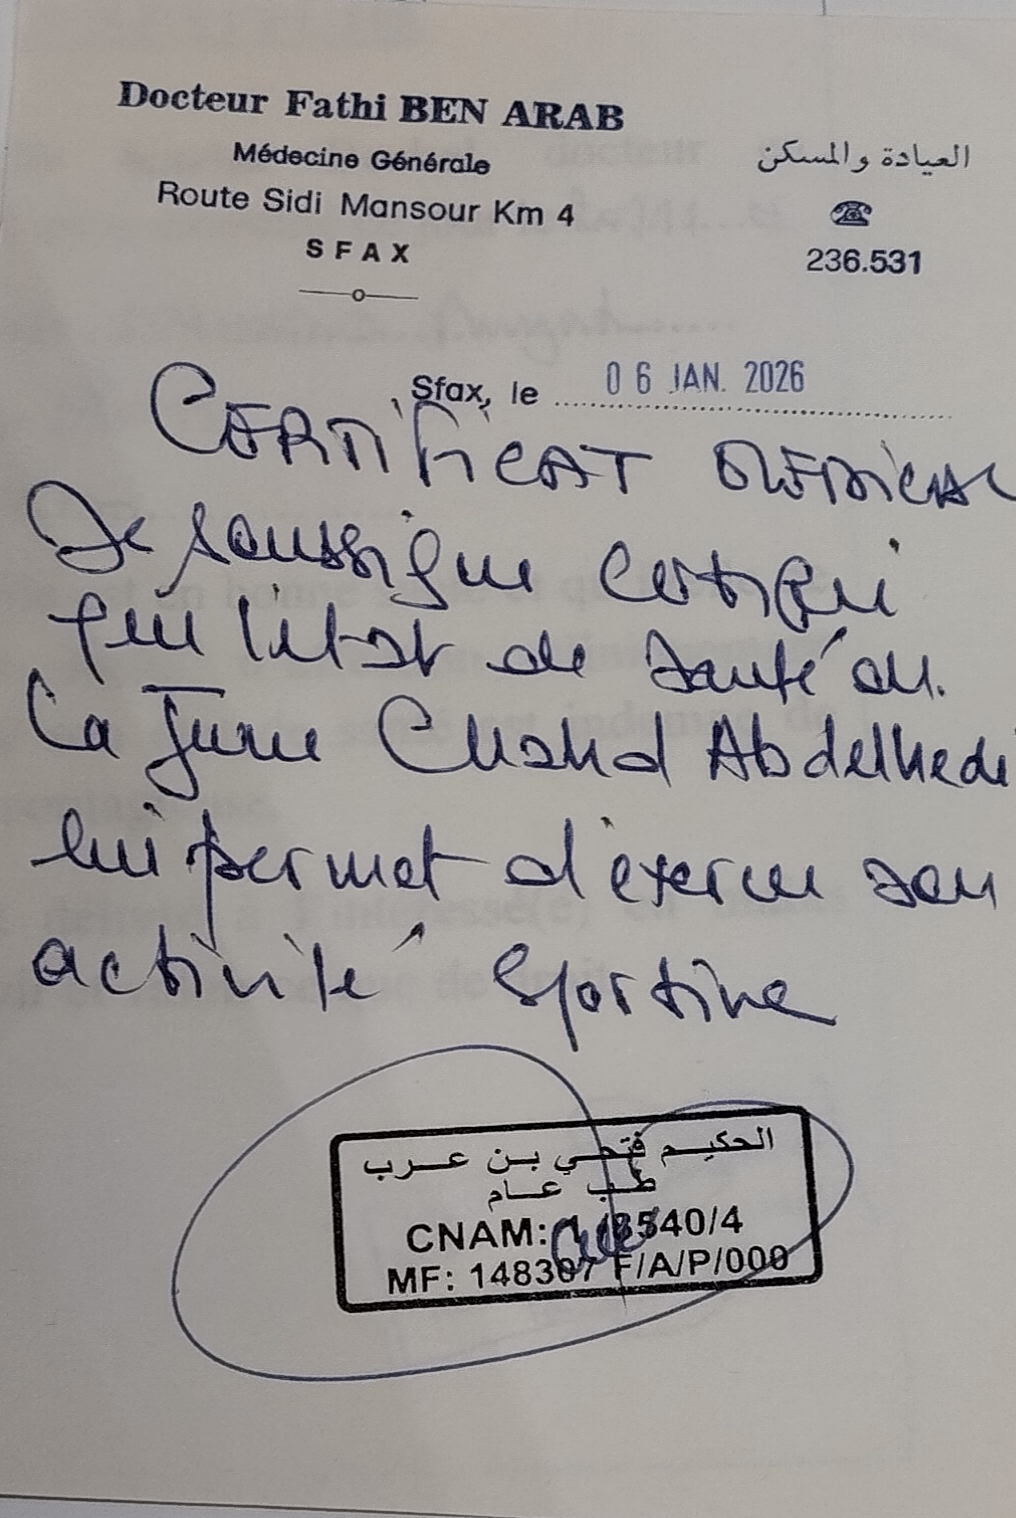 Docteur Fathi BEN ARAB
Médecine Générale
Route Sidi Mansour Km 4
SFAX
العيادة والمسكن
236.531
Sfax, le 06 JAN. 2026
CERTIFICAT MEDICAL
Je soussigne certifie
que l'etat de santé de
la jeune Abdelhedi
lui permet d'exercer son
activité sportive
الحكيم فتحي بن عرب
طب عام
CNAM: 1/8540/4
MF: 148307 F/A/P/000